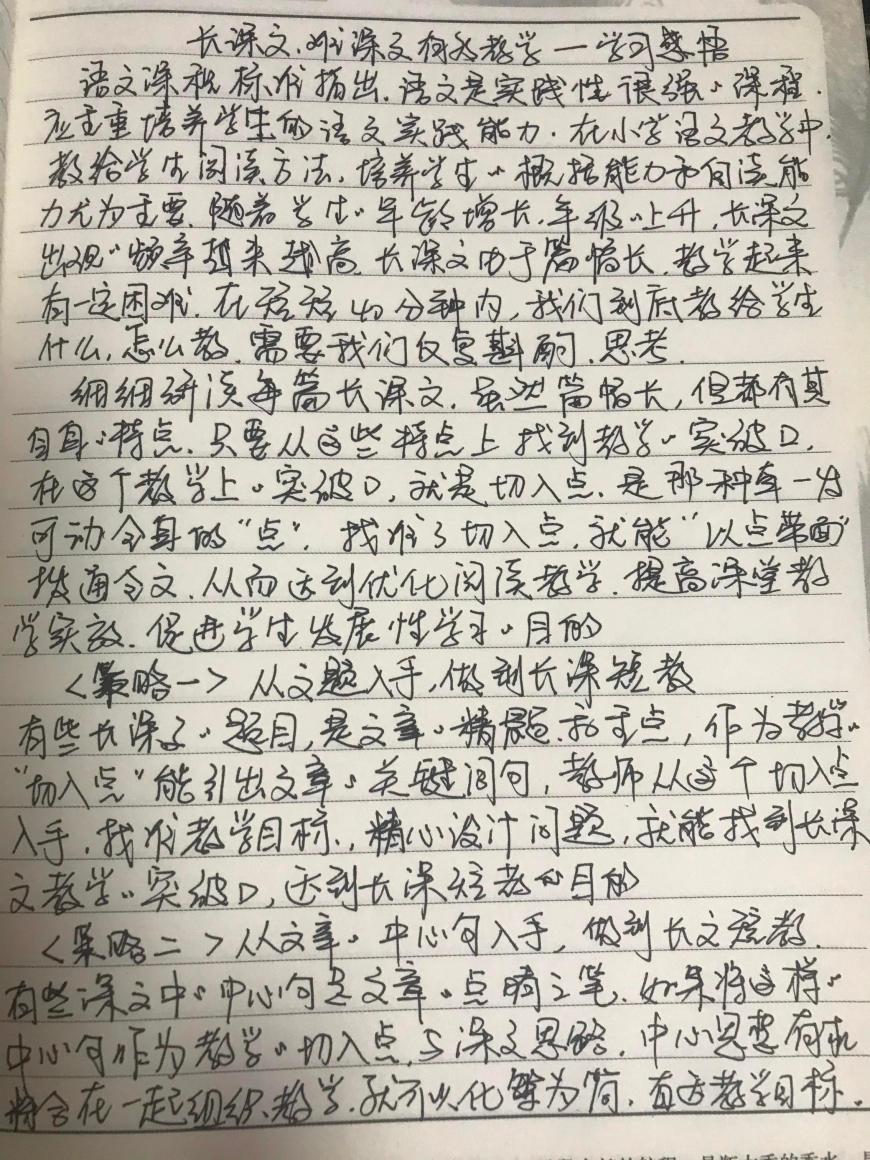 长课文、难课文有效教学—学习感悟
语文课程标准指出,语文是实践性很强的课程.
应主重培养学生的语文实践能力.在小学语文教学中,
教给学生阅读方法,培养学生的概括能力和阅读能
力尤为主要.随着学生的年龄增长.年级的上升,长课文
出现的频率越来越高.长课文由于篇幅长,教学起来
有一定困难.在短短40分钟内,我们到底教给学生
什么,怎么教.需要我们反复斟酌.思考.
细细研读每篇长课文.虽然篇幅长,但都有其
自身的特点.只要从这些特点上找到教学的突破口.
在这个教学上的突破口,就是切入点.是那种牵一发
可动全身的“点”.找准了切入点.就能“以点带面”
拨通全文.从而达到优化阅读教学.提高课堂教
学实效.促进学生发展性学习的目的
<策略一>从文题入手,做到长课短教
有些长课文的题目,是文章的精髓.和主点,作为教学的
“切入点”能引出文章的关键词句,教师从这个切入点
入手.找准教学目标.,精心设计问题,就能找到长课
文教学的突破口,达到长课短教的目的
<策略二>从文章的中心句入手,做到长文短教.
有些课文中的中心句是文章的点睛之笔.如果将这样的
中心句作为教学的切入点,与课文思路.中心思想有机
将合在一起组织教学.就可以化繁为简.直达教学目标.